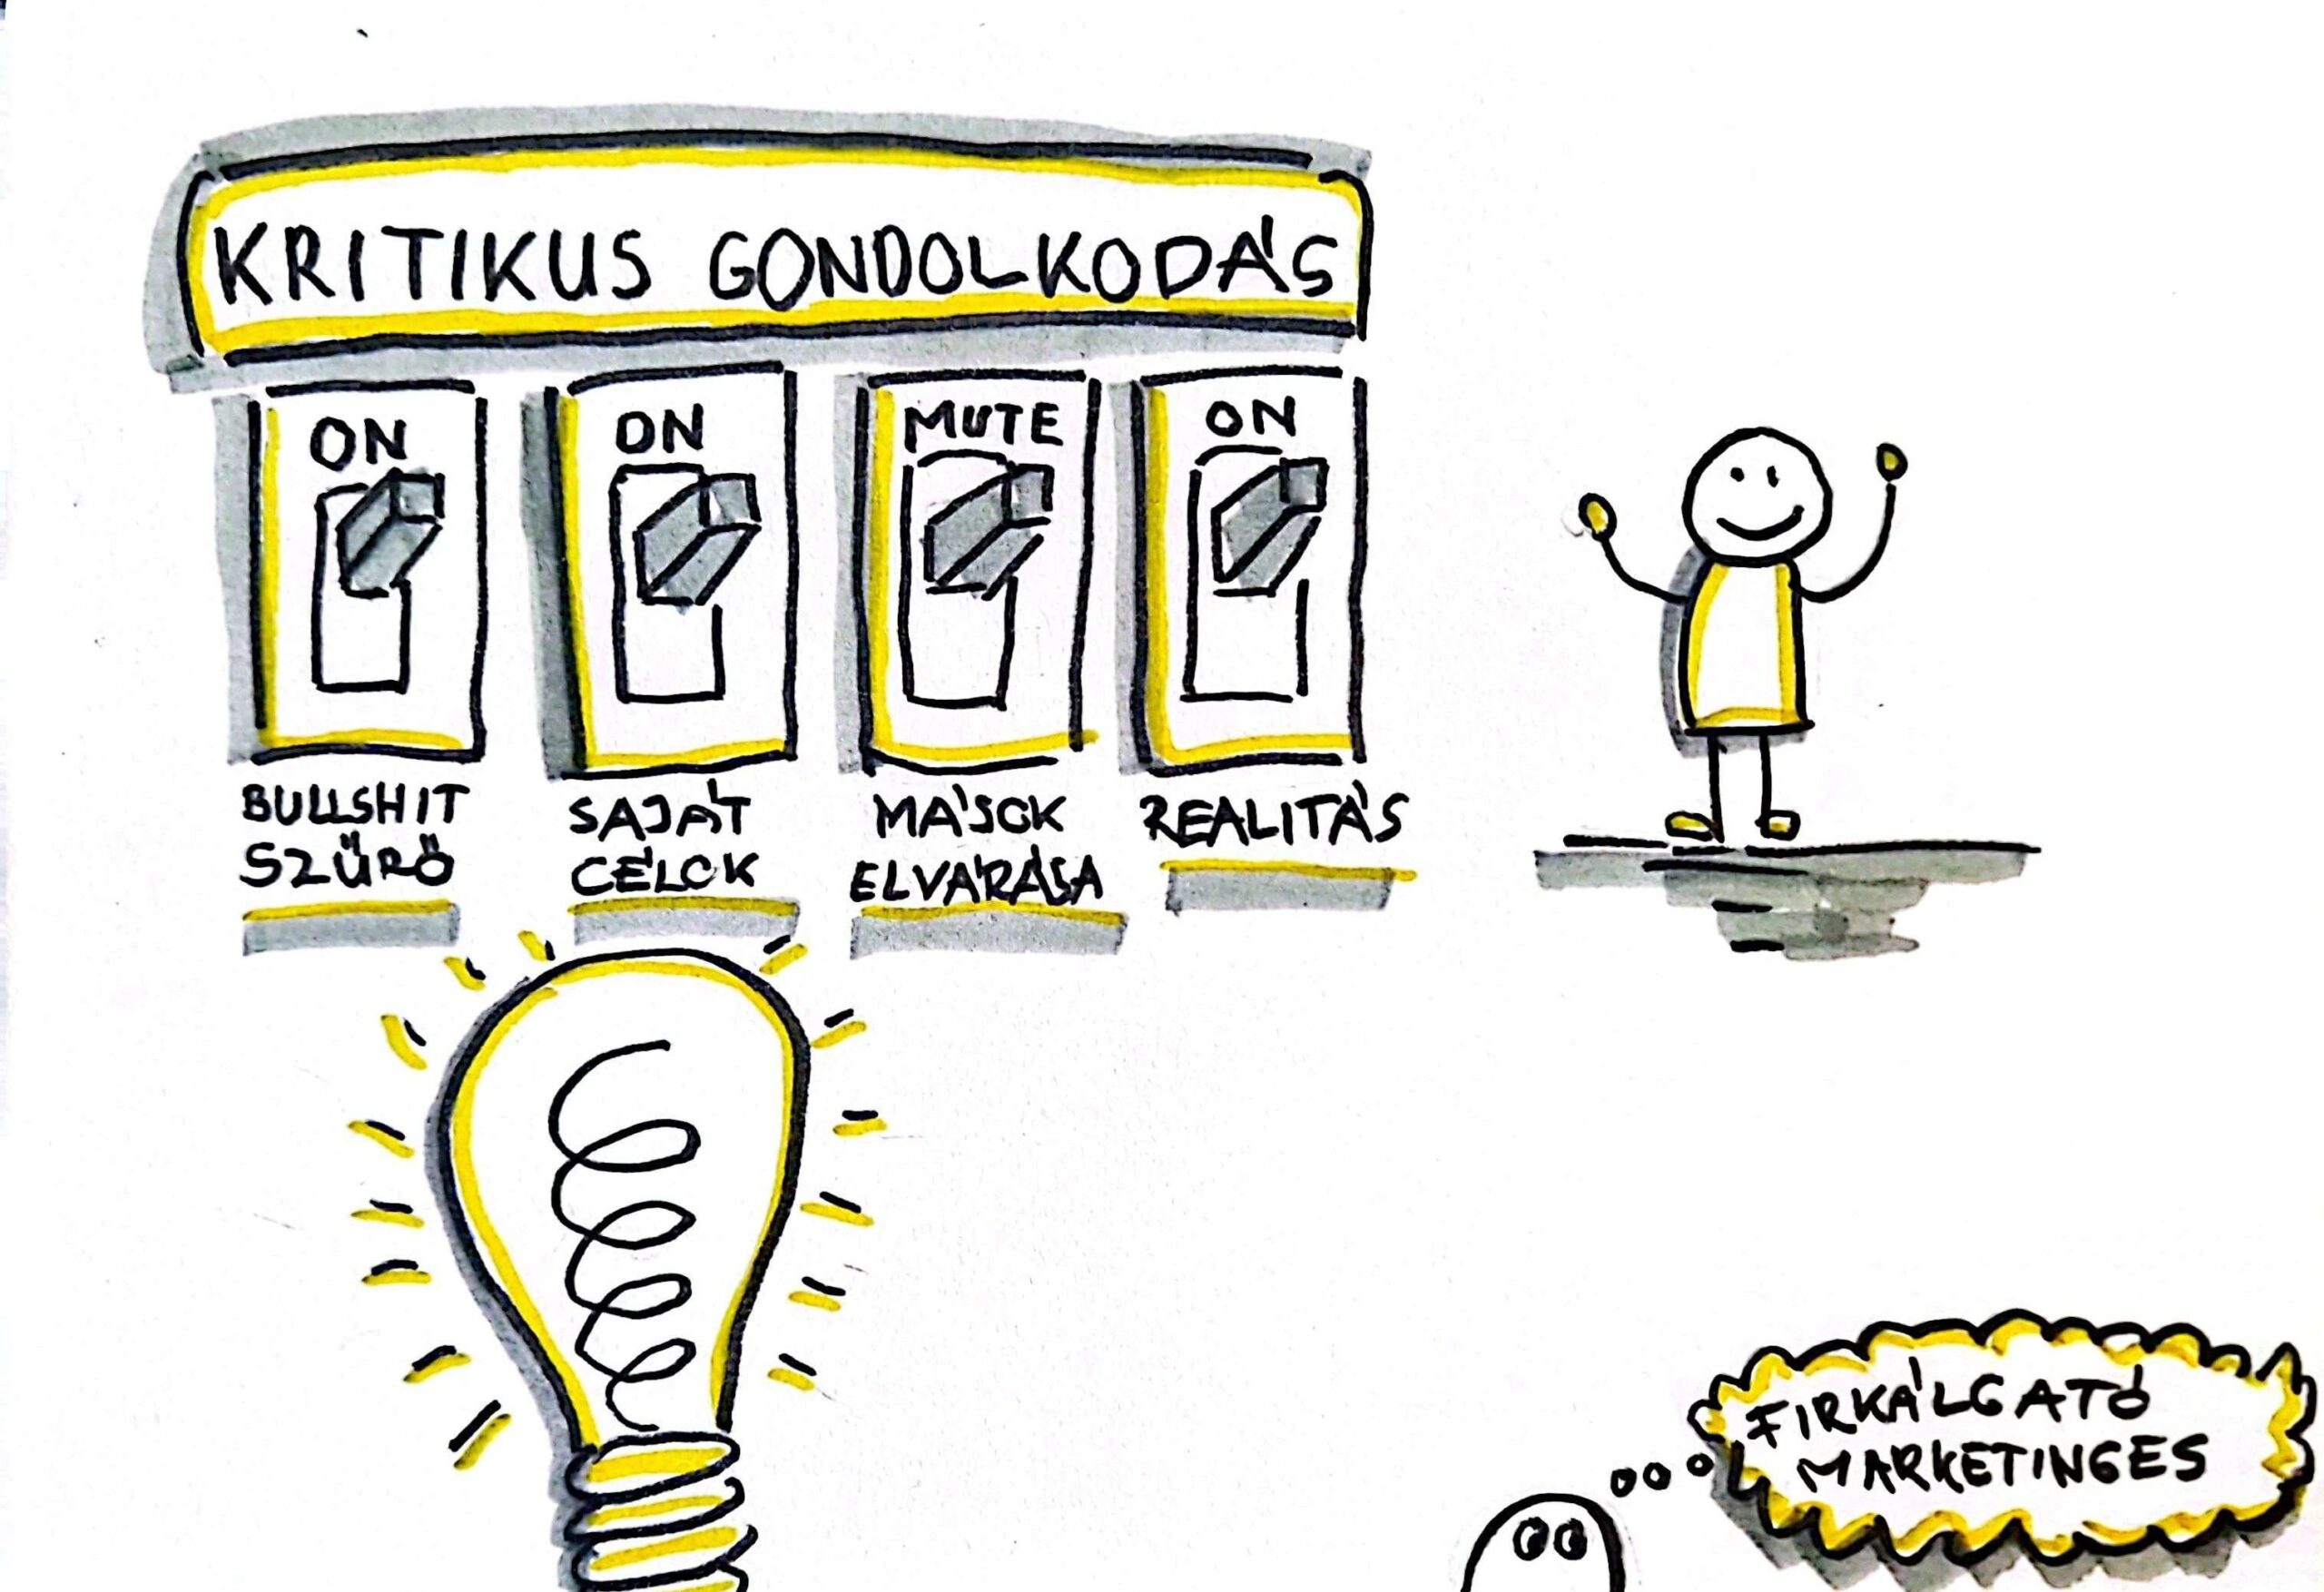 KRITIKUS GONDOLKODÁS
ON
ON
MUTE
ON
BULLSHIT
SZŰRŐ
SAJÁT
CÉLOK
MÁSOK
ELVÁRÁSA
REALITÁS
FIRKÁLGATÓ
MARKETINGES